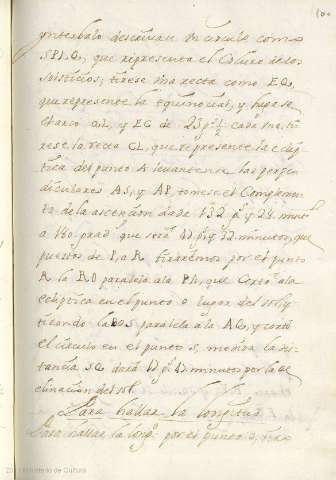 ynterbalo descrivase un circulo como
SPLQ, que representa el Coluro de los
solsticios; tirese una recta como EQ,
que represente la Equinocial, y hagase
el arco QL, y EC de 23 g. ½ cada uno, ti
rese la recta CL, que represente la eclip
tica del punto A levantense las perpen
diculares AS, y AP, tomese el Complemento
de la ascencion dada 132 g. y 28 minut.
a 180 grad. que sera 47 g. y 32 minutos, que
puestos de P, a R tiraremos por el punto
R la RO paralela a la PA, que Corto a la
ecliptica en el punto o lugar del sol, y
tirando la OS paralela a la AQ, y corto
el circulo en el punto S, medida la dis
tancia SQ dara 17 g. 47 minutos por la de
clinacion del sol.
Para hallar la longitud
Para hallar la long. por el punto O, tirar
Ministerio de Cultura